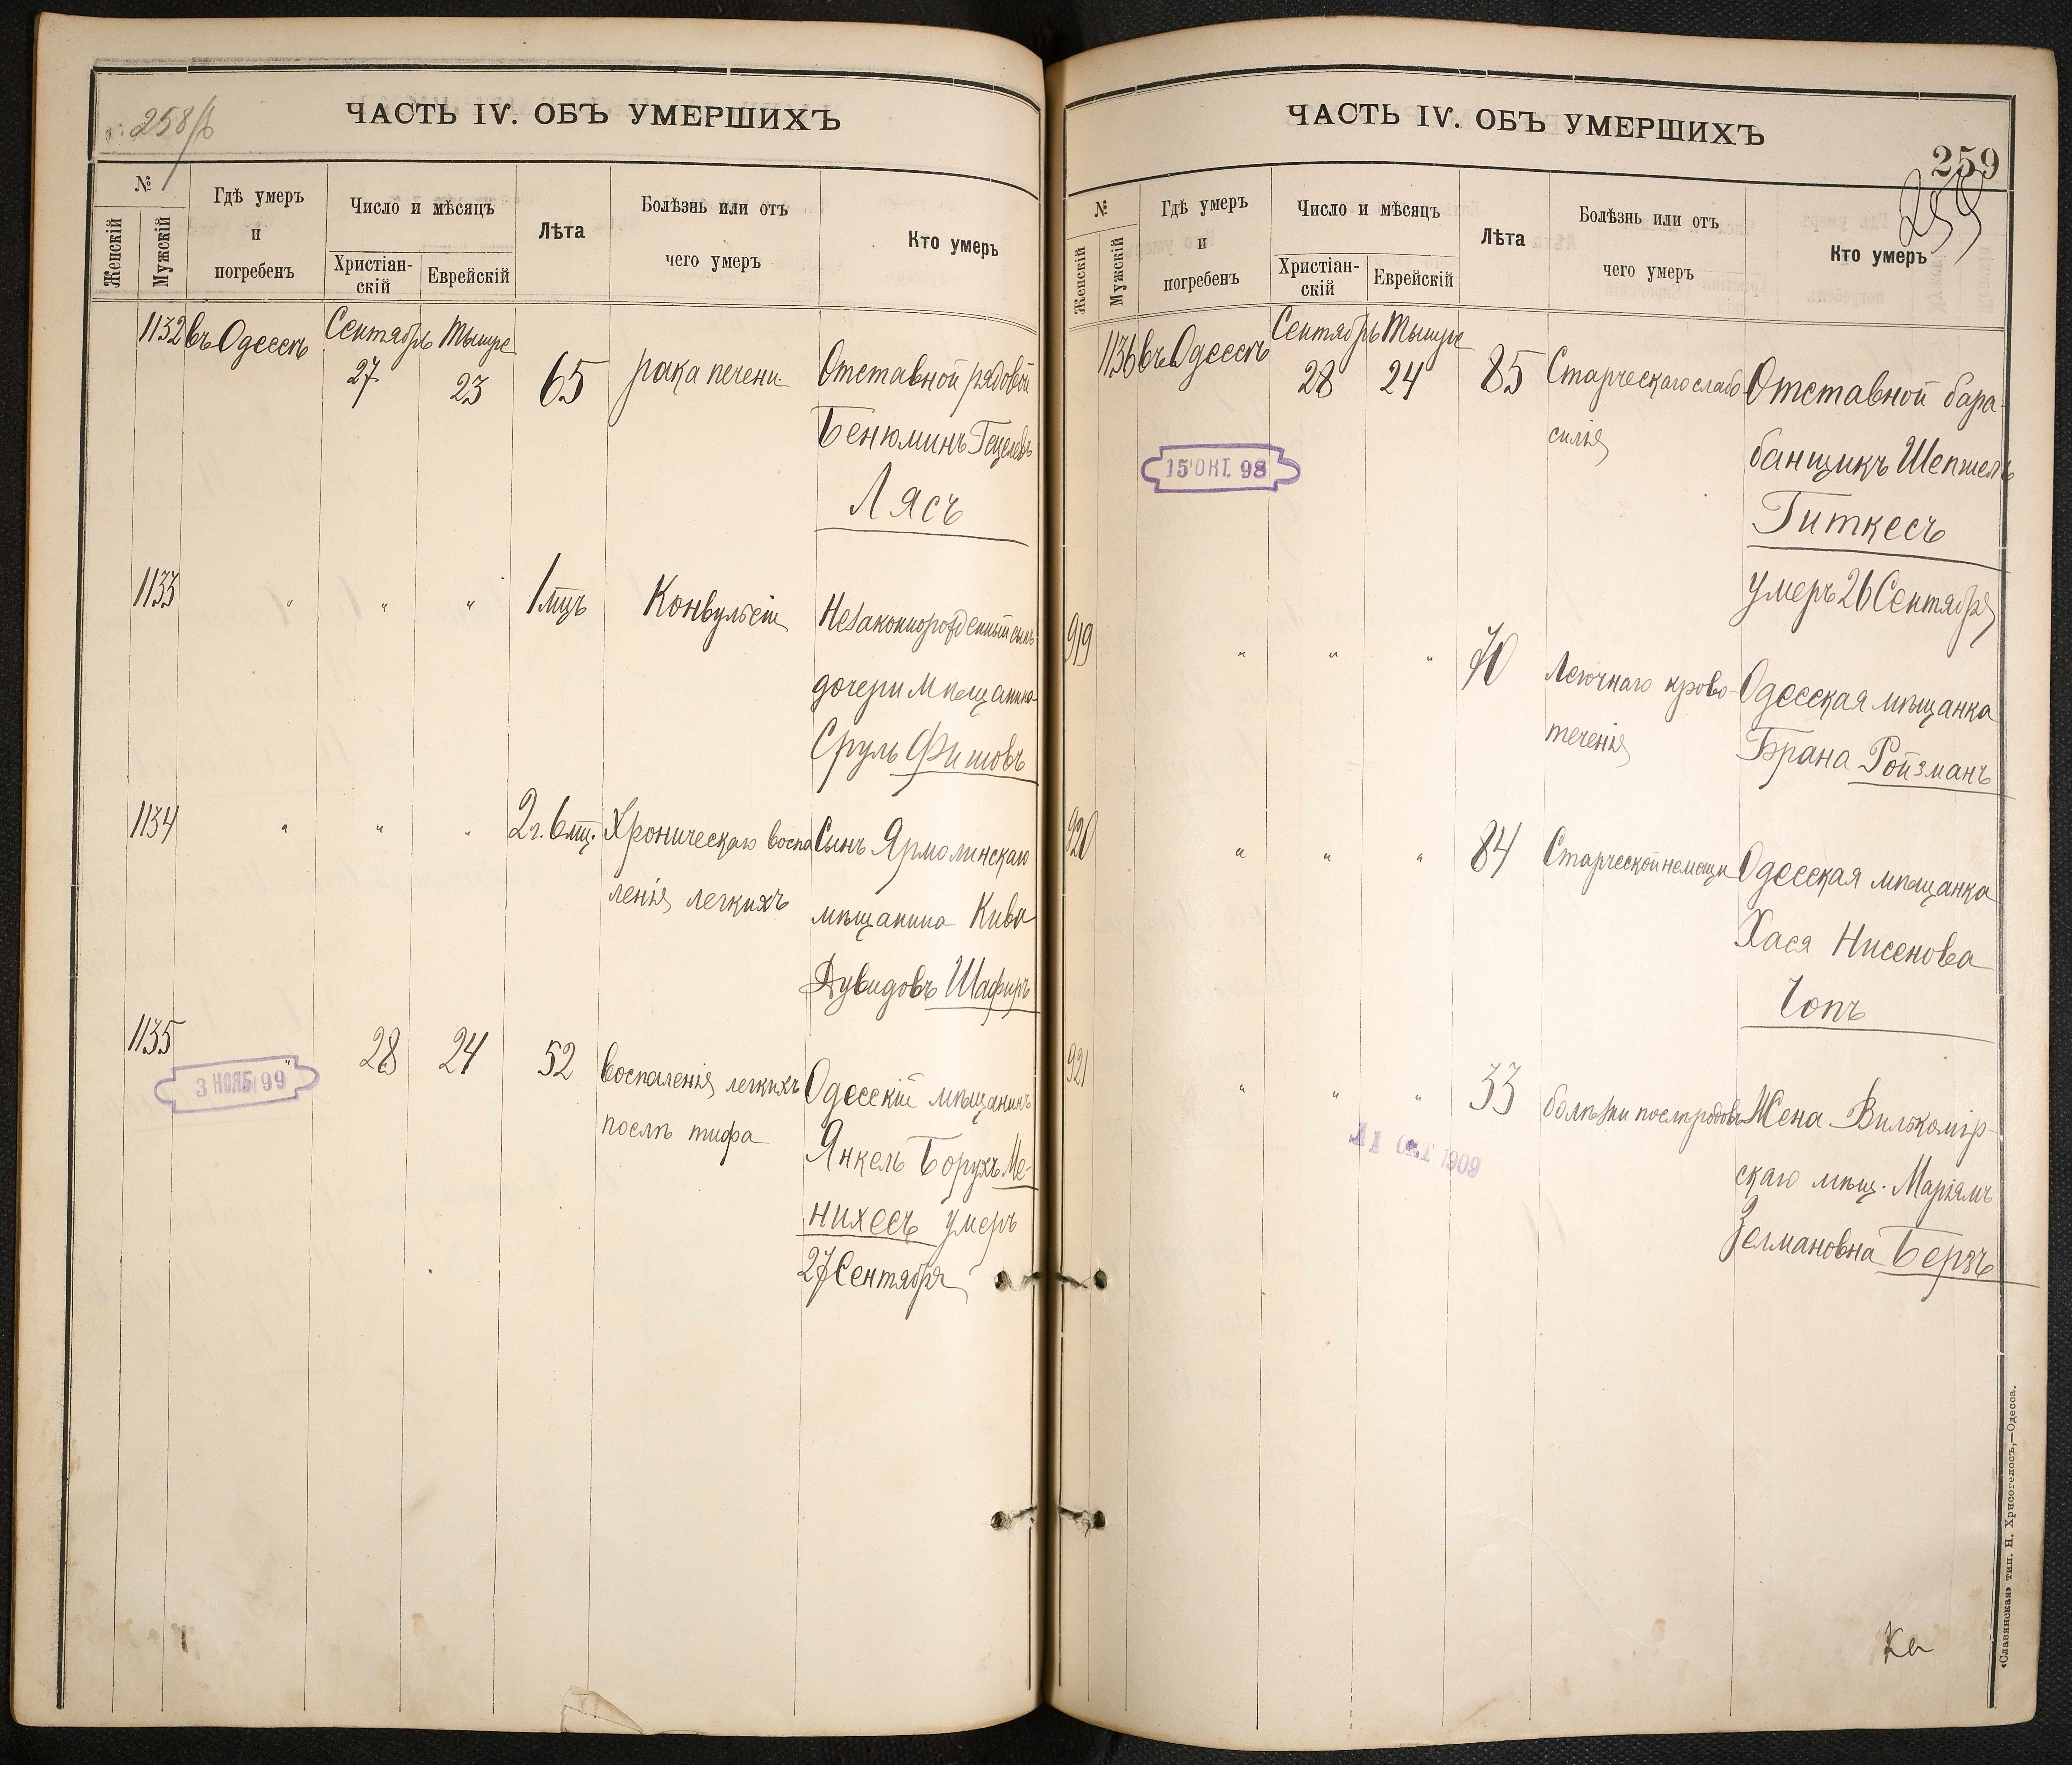 258/б
ЧАСТЬ IV. ОБЪ УМЕРШИХЪ
№
Женскій
Мужскій
Гдѣ умеръ
и
погребенъ
Число и мѣсяцъ
Христіан-
скій
Еврейскій
Лѣта
Болѣзнь или отъ
чего умеръ
Кто умеръ
1132 въ Одессѣ Сентябрь Тышре
27 23 65 рака печени Отставной рядовой
Бенюминъ Гецелевъ
Лясъ
1133 " " " 1 мцъ Конвульсіи Незаконнорожденный сынъ
дочери мѣщанина
Сруль Фишовъ
1134 " " " 2 г. 6 мц. Хроническаго воспа Сынъ Ярмолинскаго
ленія легкихъ мѣщанина Кива
Дувидовъ Шафиръ
1135 " 28 24 52 воспаленія легкихъ Одесскій мѣщанинъ
послѣ тифа Янкель Борухъ Ме-
нихесъ умеръ
27 Сентября
3 НОЯБ 99
ЧАСТЬ IV. ОБЪ УМЕРШИХЪ
259
259
№
Женскій
Мужскій
Гдѣ умеръ
и
погребенъ
Число и мѣсяцъ
Христіан-
скій
Еврейскій
Лѣта
Болѣзнь или отъ
чего умеръ
Кто умеръ
1136 въ Одессѣ Сентябрь Тышре
28 24 85 Старческаго слабо Отставной бара-
силія банщикъ Шепшель
Гиткесъ
умеръ 26 Сентября
15 ОКТ. 98
919 " " " 70 Легочнаго крово- Одесская мѣщанка
теченія Брана Ройзманъ
920 " " " 84 Старческой немощи Одесская мѣщанка
Хася Нисенова
Чопъ
921 " " " 33 болѣзни послѣ родовъ Жена Вилькомір-
скаго мѣщ. Маріямъ
Зелмановна Берзъ
11 ОКТ 1909
«Славянская» тип. Н. Хрисогелосъ,—Одесса.